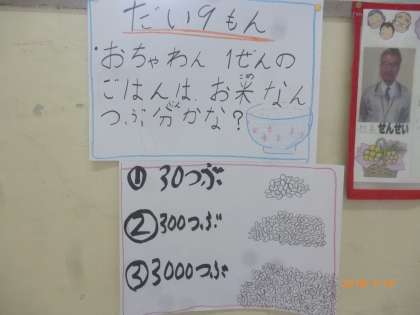 だい9もん
・おちゃわん 1ぜんの
ごはんは、お米なん
つぶ分かな?
① 30つぶ
② 300つぶ
③ 3000つぶ
せんせい